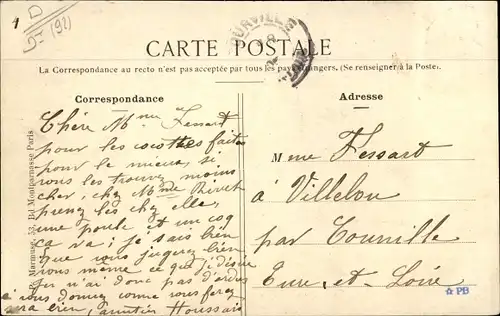 1
D
(92)
CARTE POSTALE
La Correspondance au recto n'est pas acceptée par tous les pays étrangers. (Se renseigner à la Poste).
Correspondance
Chère Mme Fessart
pour les cocottes faites
pour le mieux, si
vous les trouvez moins
cher, chez Mme
prenez les chez elle,
une poule et un coq
ça va; je sais bien
que vous jugerez bien
vous même ce que je désire
je n'ai donc pas d'ordres
à vous donner comme vous ferez
sera bien, amitiés Houssais
Adresse
Mme Fessart
à Villelou
par Courville
Eure-et-Loire
Marmuse, 53, Bd Montparnasse Paris
PB